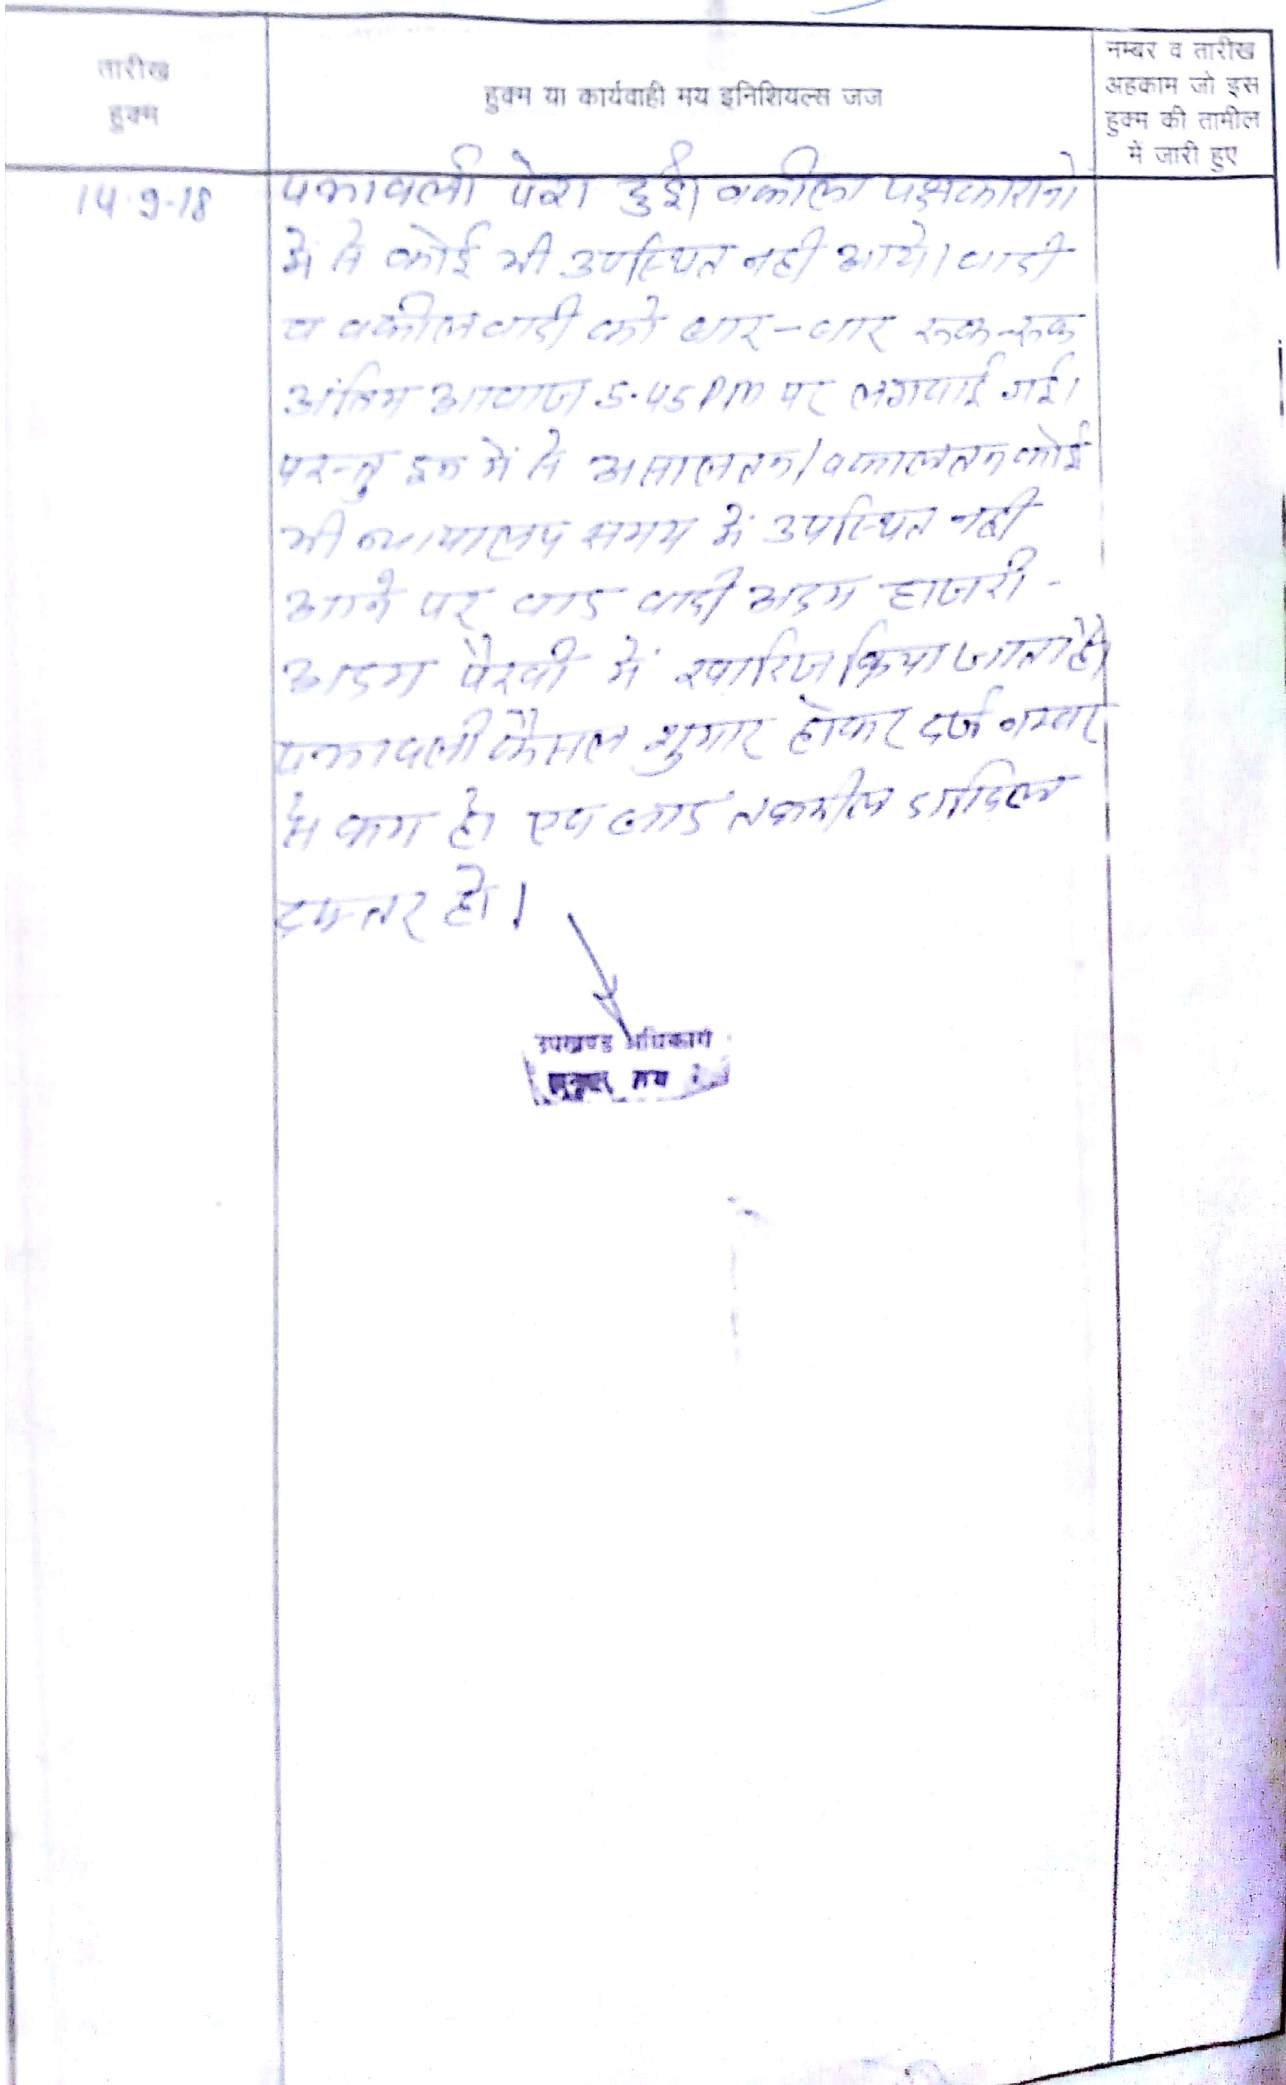 तारीख
हुक्म
हुक्म या कार्यवाही मय इनिशियल्स जज
नम्बर व तारीख
अहकाम जो इस
हुक्म की तामील
में जारी हुए
14.9.18
पत्रावली पेश हुई। वकील पक्षकारानो
में से कोई भी उपस्थित नही आये। वादी
व वकील वादी को बार-बार रूक-रूक
अंतिम आवाज 5.45 PM पर लगवाई गई।
परन्तु इन में से असालतन/वकालतन कोई
भी न्यायालय समय में उपस्थित नही
आने पर वाद वादी अदम हाजरी -
अदम पैरवी में खारिज किया जाता है।
पत्रावली फैसल शुमार होकर दर्ज नम्बर
से कम हो एवं बाद तकमील दाखिल
दफ्तर हो।
उपखण्ड अधिकारी